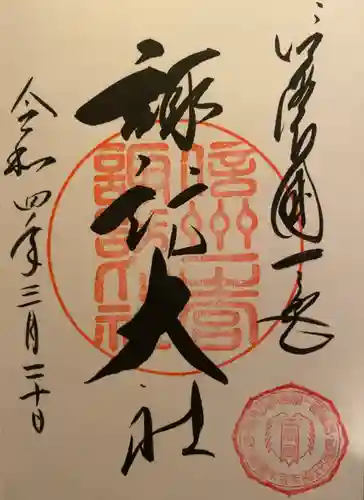 信濃國一宮
諏訪大社
令和四年三月二十日
信州一宮
諏訪大社